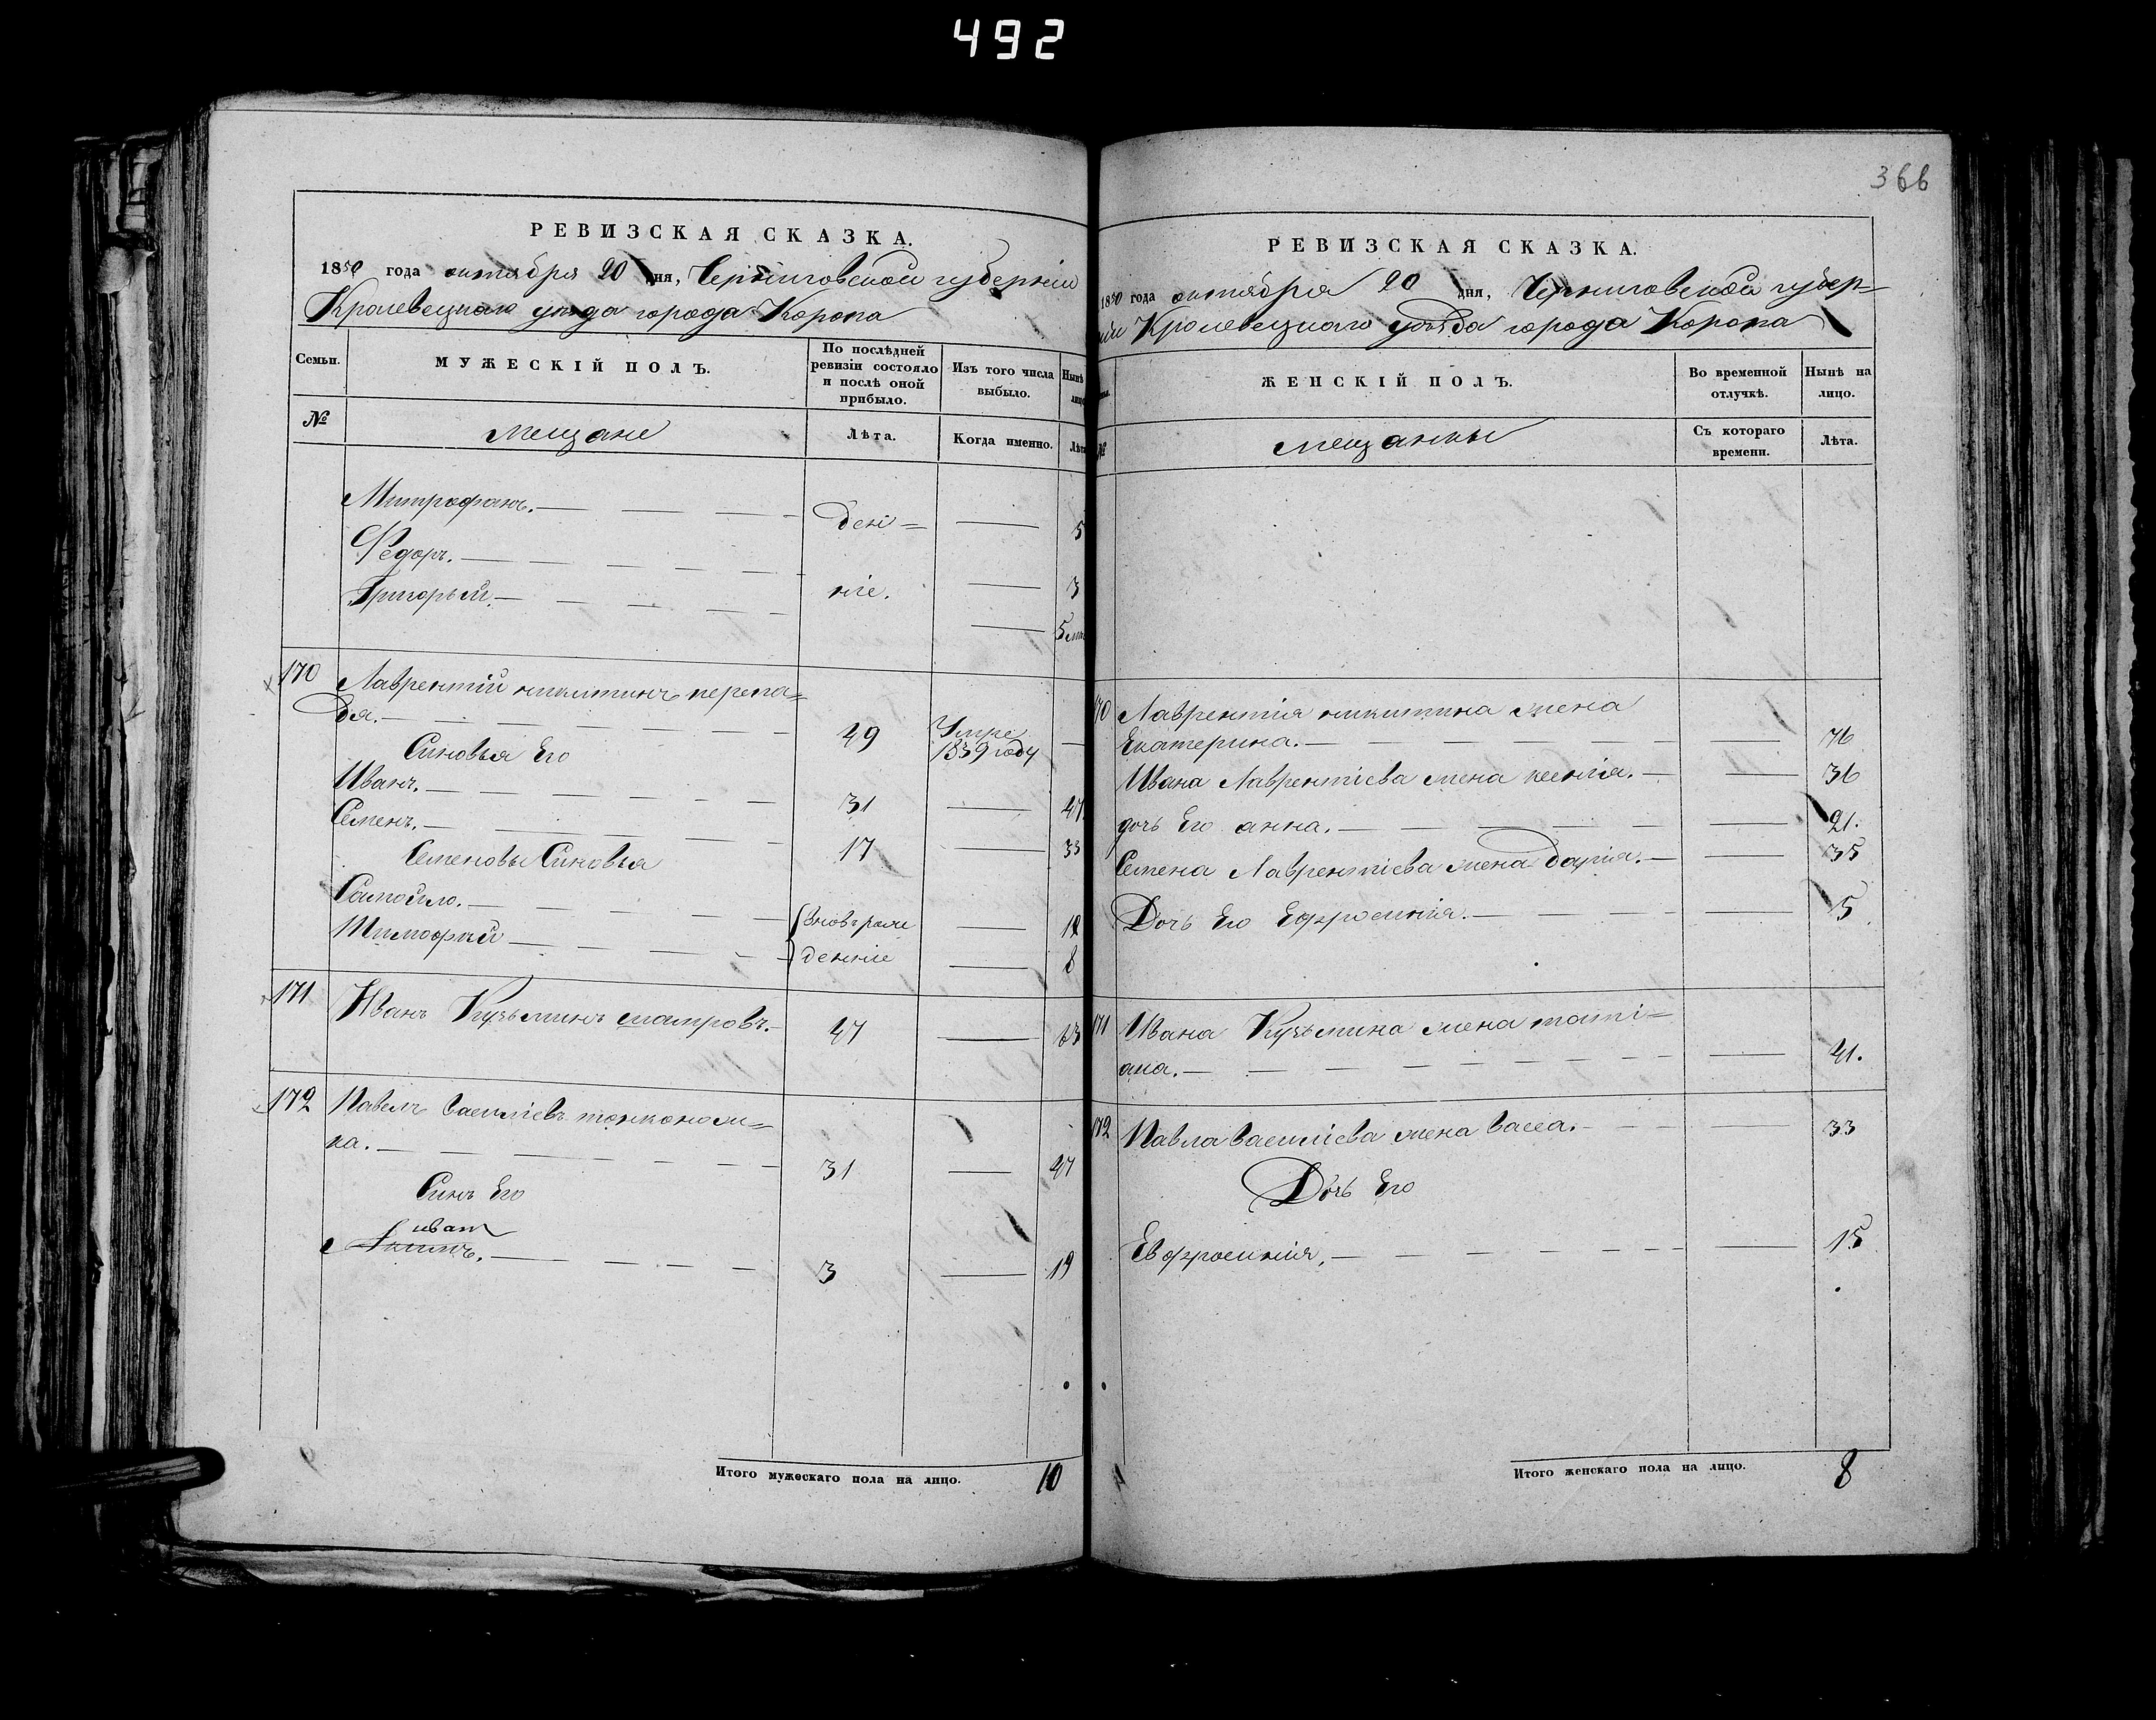 492
366
РЕВИЗСКАЯ СКАЗКА.
1850 года октября 20 дня, Черниговской губерніи
Кролевецкаго уѣзда города Коропа
Семьи.
МУЖЕСКІЙ ПОЛЪ.
По послѣдней ревизіи состояло и послѣ оной прибыло.
Изъ того числа выбыло.
Нынѣ лицо
№
мещане
Лѣта.
Когда именно.
Лѣта
Митрофанъ. — — — дені= — 5
Федоръ. — — — — 3
Григорьій. — — — ніе. — 5
170 Лаврентій никитинъ перепа=
дя. — — — — 49 Умре 1839 году —
Синовья Его
Иванъ. — — — 31 — 47
Семенъ. — — — 17 — 33
Семеновы Синовья
Самойло. — — — {вновь рож — 12
Тимофѣй — — — }денніе — 8
171 Иванъ Кузьминъ — 47 — 63
172 Павелъ василіевъ тонконож=
ка. — — — — 31 — 47
Синъ Его
иван
Акимъ. — — — 3 — 19
Итого мужескаго пола на лицо. 10
РЕВИЗСКАЯ СКАЗКА.
1850 года октября 20 дня, Черниговской губер=
ніи Кролевецкаго уѣзда города Коропа
ЖЕНСКІЙ ПОЛЪ.
Во временной отлучкѣ.
Нынѣ на лицо.
№
мещанки
Съ котораго времени.
Лѣта.
170 Лаврентія никитина жена
Екатерина. — — — — 76
Ивана Лаврентіева жена ксенія. — — 36
дочь Его анна. — — — — 21.
Семена Лаврентіева жена дарія. — — 35
Дочь Его Ефросинія. — — — 5
171 Ивана Кузьмина жена таті=
ана. — — — — 41.
172 Павла василіева жена васса. — — 33
Дочь Его
Евфросинія. — — — — 15
Итого женскаго пола на лицо. 8